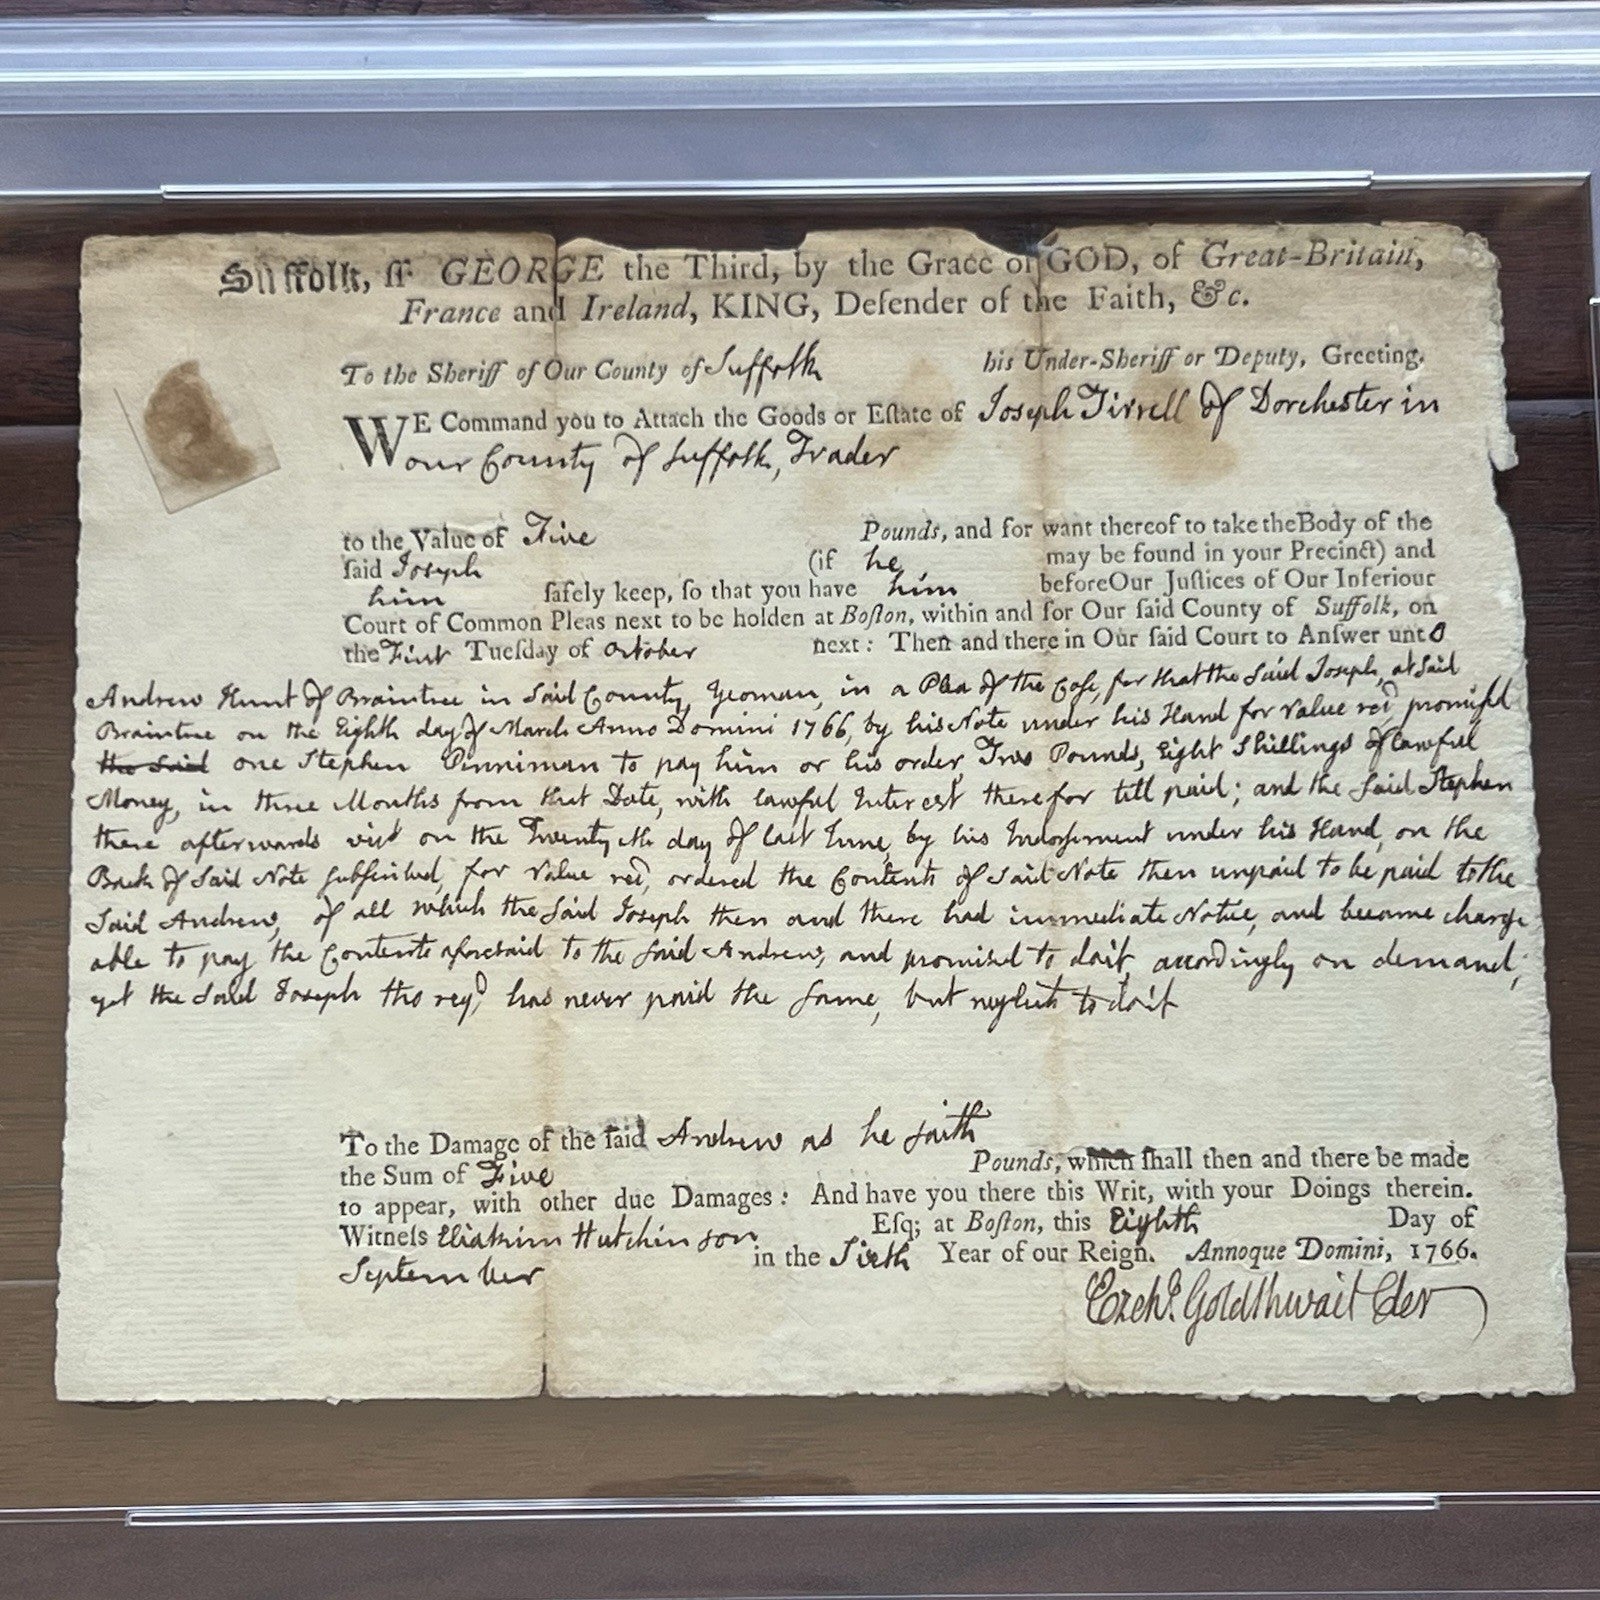 Suffolk, ſſ. GEORGE the Third, by the Grace of GOD, of Great-Britain,
France and Ireland, KING, Defender of the Faith, &c.
To the Sheriff of Our County of Suffolk his Under-Sheriff or Deputy, Greeting.
WE Command you to Attach the Goods or Eſtate of Joseph Tirrell of Dorchester in
our County of Suffolk, Trader
to the Value of Five Pounds, and for want thereof to take the Body of the
ſaid Joseph (if he may be found in your Precinct) and
him ſafely keep, ſo that you have him before Our Juſtices of Our Inferiour
Court of Common Pleas next to be holden at Boſton, within and for Our ſaid County of Suffolk, on
the First Tueſday of October next: Then and there in Our ſaid Court to Anſwer unto
Andrew Hunt of Braintree in Said County, Yeoman, in a Plea of the Case, for that the Said Joseph, at Said
Braintree on the Eighth day of March Anno Domini 1766, by his Note under his Hand for value recd, promiſed
the Said one Stephen Penniman to pay him or his order Two Pounds, Eight Shillings of lawful
Money, in three Months from that Date, with lawful Interest therefor till paid; and the Said Stephen
there afterwards vizt on the Twentyeth day of last June, by his Indorsement under his Hand, on the
Back of Said Note Subſcribed, for value recd, ordered the Contents of Said Note then unpaid to be paid to the
Said Andrew, of all which the Said Joseph then and there had immediate Notice, and became charge
able to pay the Contents aforesaid to the Said Andrew, and promised to do it accordingly on demand;
yet the Said Joseph tho reqd has never paid the Same, but neglects to do it
To the Damage of the ſaid Andrew as he saith
the Sum of Five Pounds, which ſhall then and there be made
to appear, with other due Damages: And have you there this Writ, with your Doings therein.
Witneſs Eliakim Hutchinson Eſq; at Boſton, this Eighth Day of
September in the Sixth Year of our Reign. Annoque Domini, 1766.
Ezekl. Goldthwait Cler